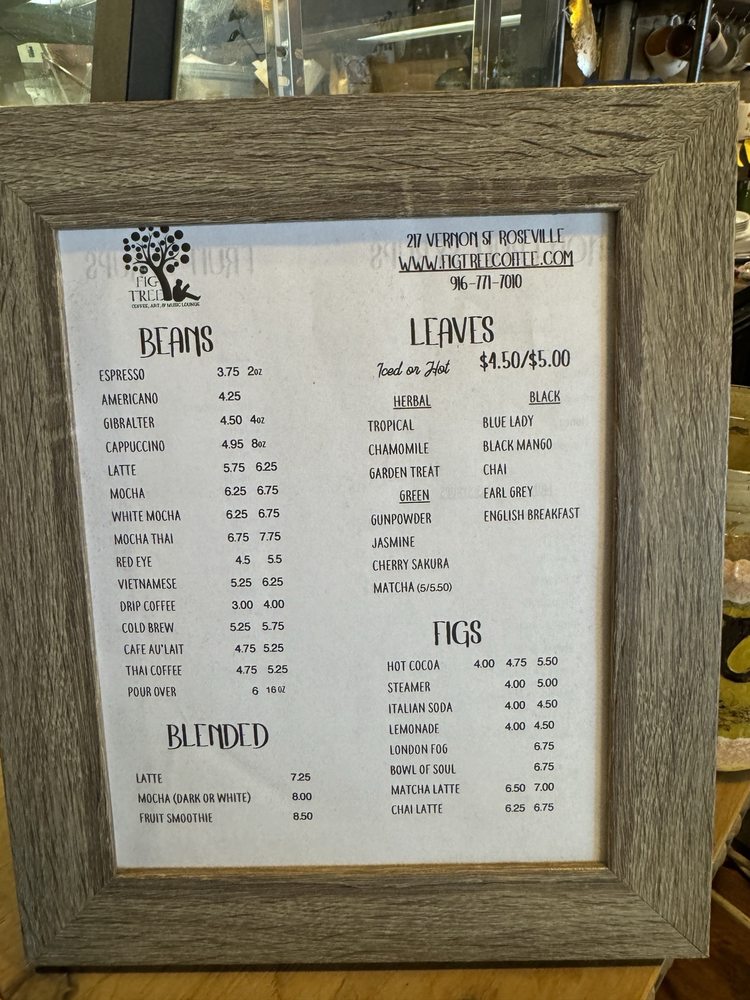 FIG
TREE
COFFEE, ART, & MUSIC LOUNGE
217 VERNON ST ROSEVILLE
WWW.FIGTREECOFFEE.COM
916-771-7010
BEANS
ESPRESSO 3.75 2oz
AMERICANO 4.25
GIBRALTER 4.50 4oz
CAPPUCCINO 4.95 8oz
LATTE 5.75 6.25
MOCHA 6.25 6.75
WHITE MOCHA 6.25 6.75
MOCHA THAI 6.75 7.75
RED EYE 4.5 5.5
VIETNAMESE 5.25 6.25
DRIP COFFEE 3.00 4.00
COLD BREW 5.25 5.75
CAFE AU'LAIT 4.75 5.25
THAI COFFEE 4.75 5.25
POUR OVER 6 16 OZ
BLENDED
LATTE 7.25
MOCHA (DARK OR WHITE) 8.00
FRUIT SMOOTHIE 8.50
LEAVES
Iced or Hot $4.50/$5.00
HERBAL
TROPICAL
CHAMOMILE
GARDEN TREAT
GREEN
GUNPOWDER
JASMINE
CHERRY SAKURA
MATCHA (5/5.50)
BLACK
BLUE LADY
BLACK MANGO
CHAI
EARL GREY
ENGLISH BREAKFAST
FIGS
HOT COCOA 4.00 4.75 5.50
STEAMER 4.00 5.00
ITALIAN SODA 4.00 4.50
LEMONADE 4.00 4.50
LONDON FOG 6.75
BOWL OF SOUL 6.75
MATCHA LATTE 6.50 7.00
CHAI LATTE 6.25 6.75